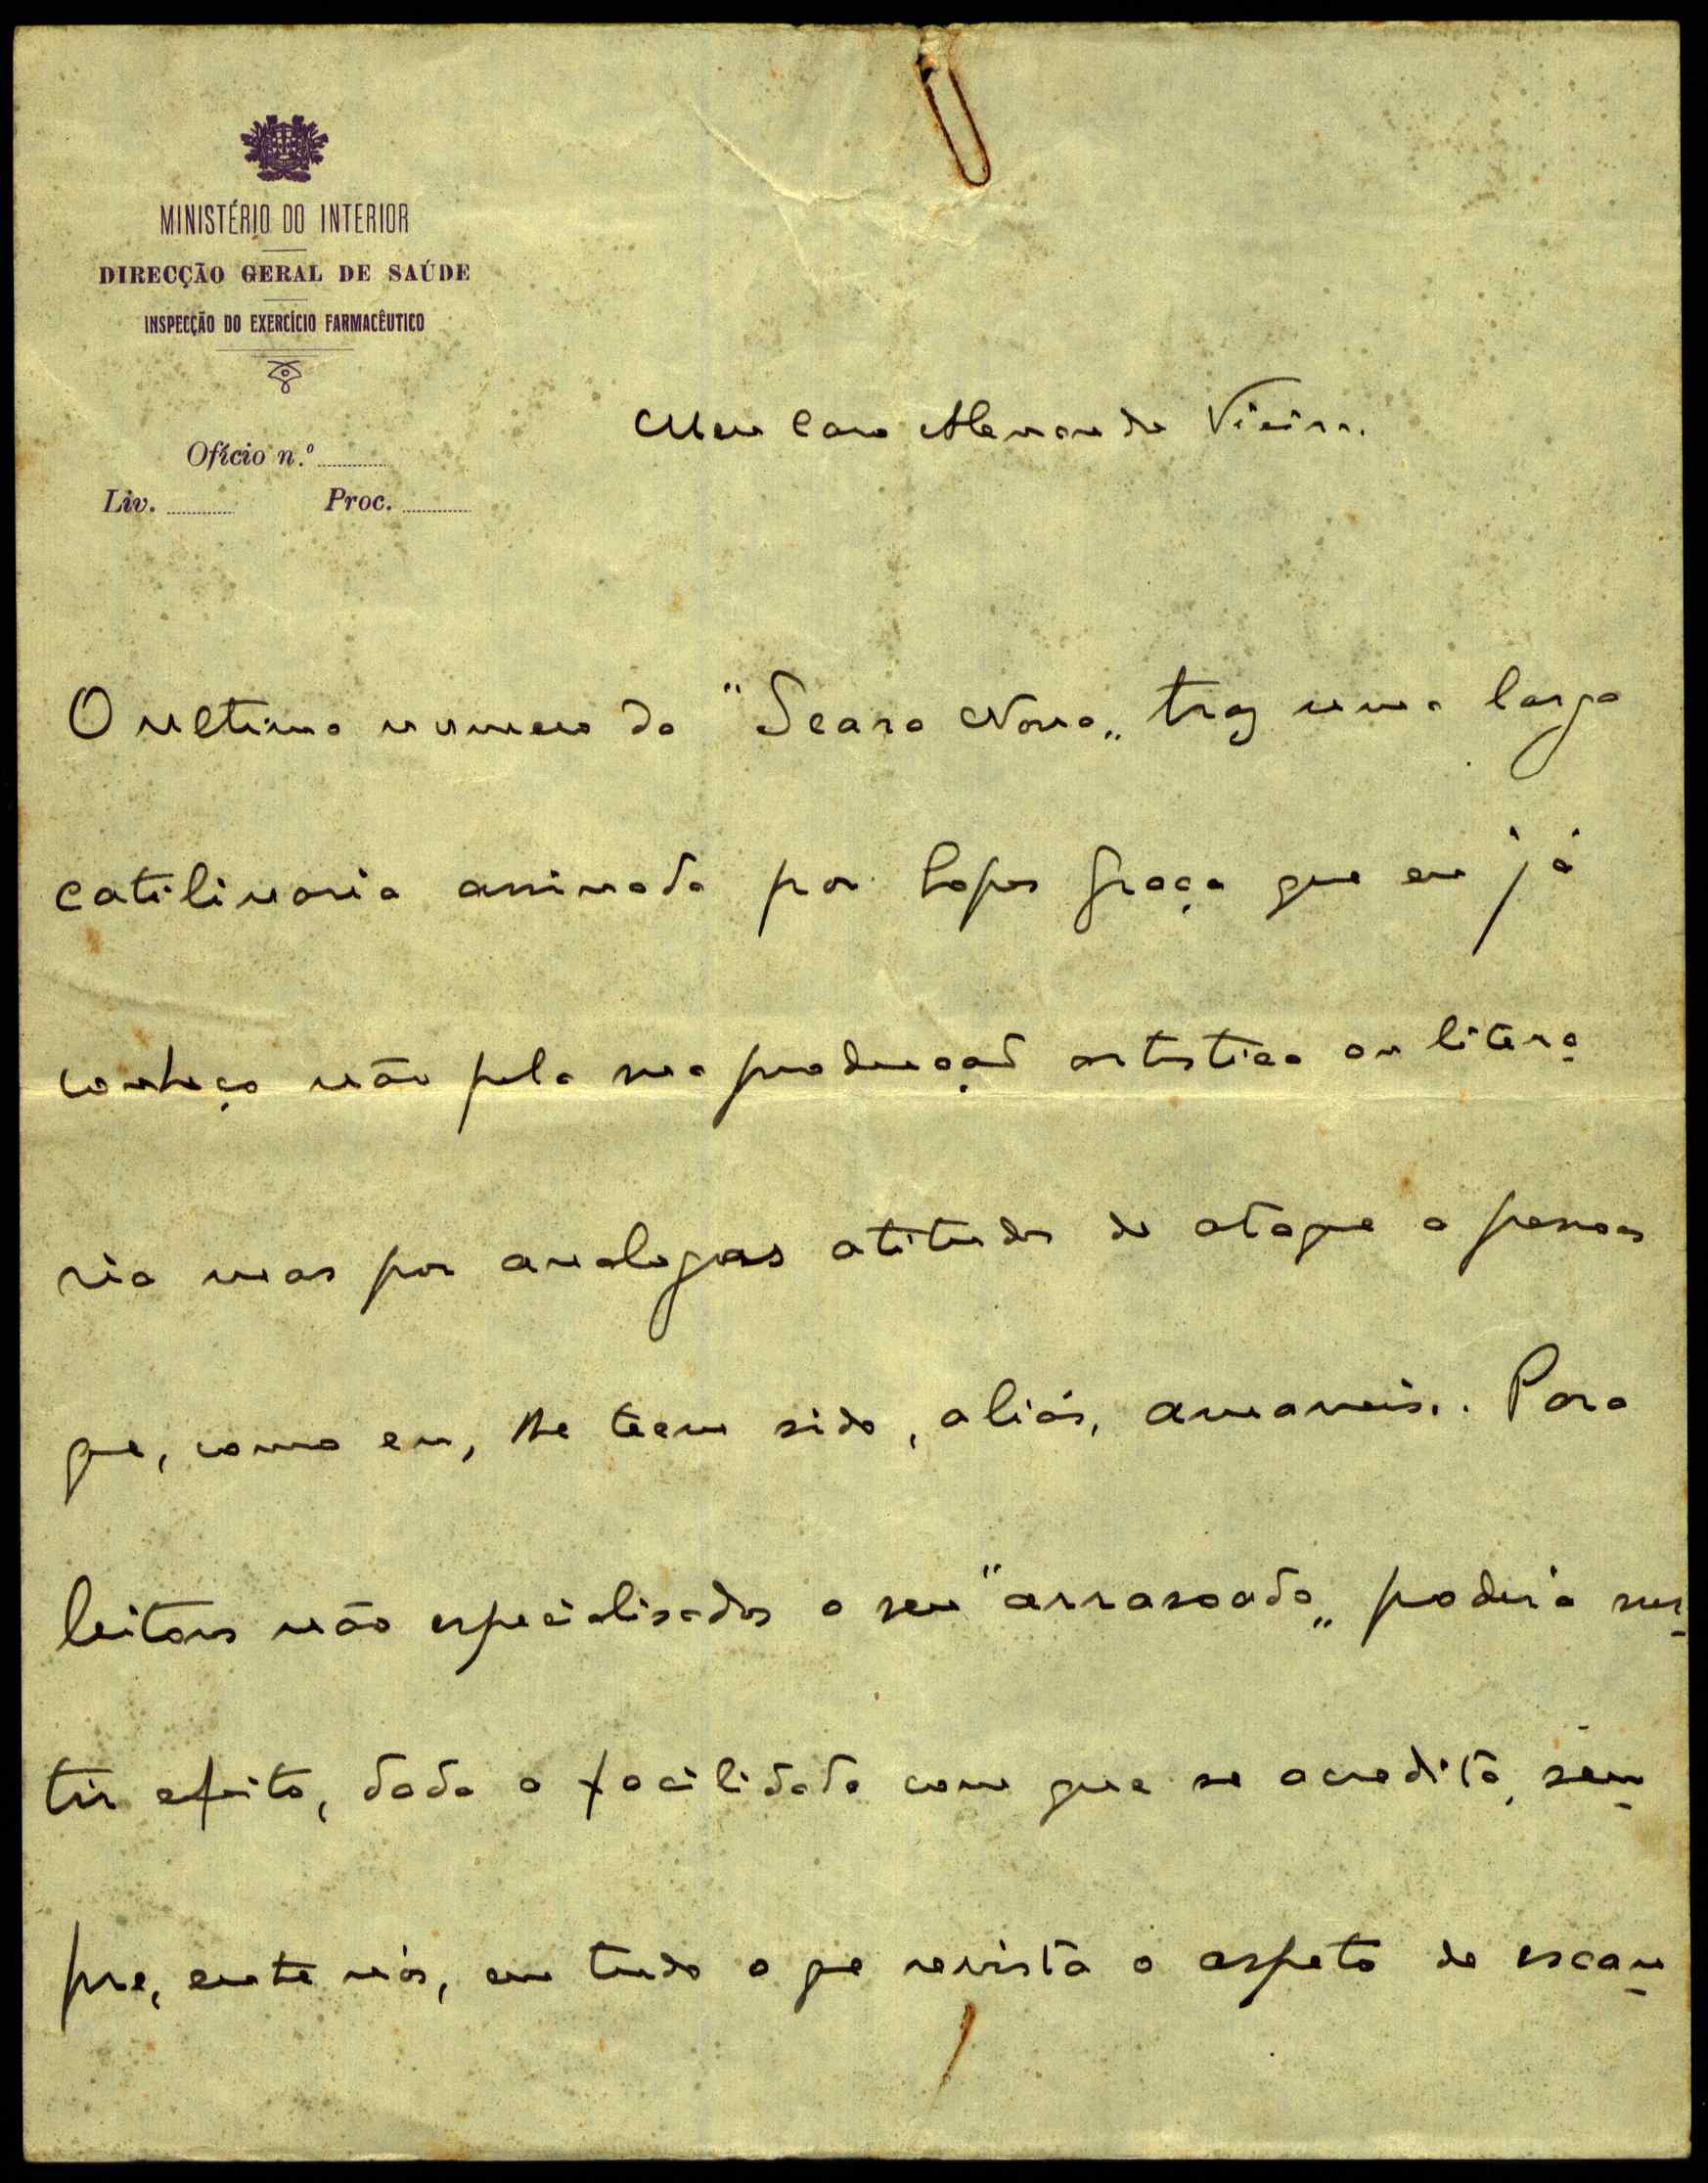 MINISTÉRIO DO INTERIOR
DIRECÇÃO GERAL DE SAÚDE
INSPECÇÃO DO EXERCÍCIO FARMACÊUTICO
Ofício n.º
Liv. Proc.
Meu Caro Alexandre Vieira.
O ultimo numero da "Seara Nova„ traz uma larga
catilinaria assinada por Lopes Graça que eu já
conheço não pela sua produção artistica ou litera
ria mas por analogas atitudes de ataque a pessoas
que, como eu, lhe teem sido, aliás, amaveis. Para
leitores não especialisados o seu "arrasoado„ poderá sur
tir efeito, dada a facilidade com que se acredita, sem
pre, entre nós, em tudo o que revista o aspeto de escan